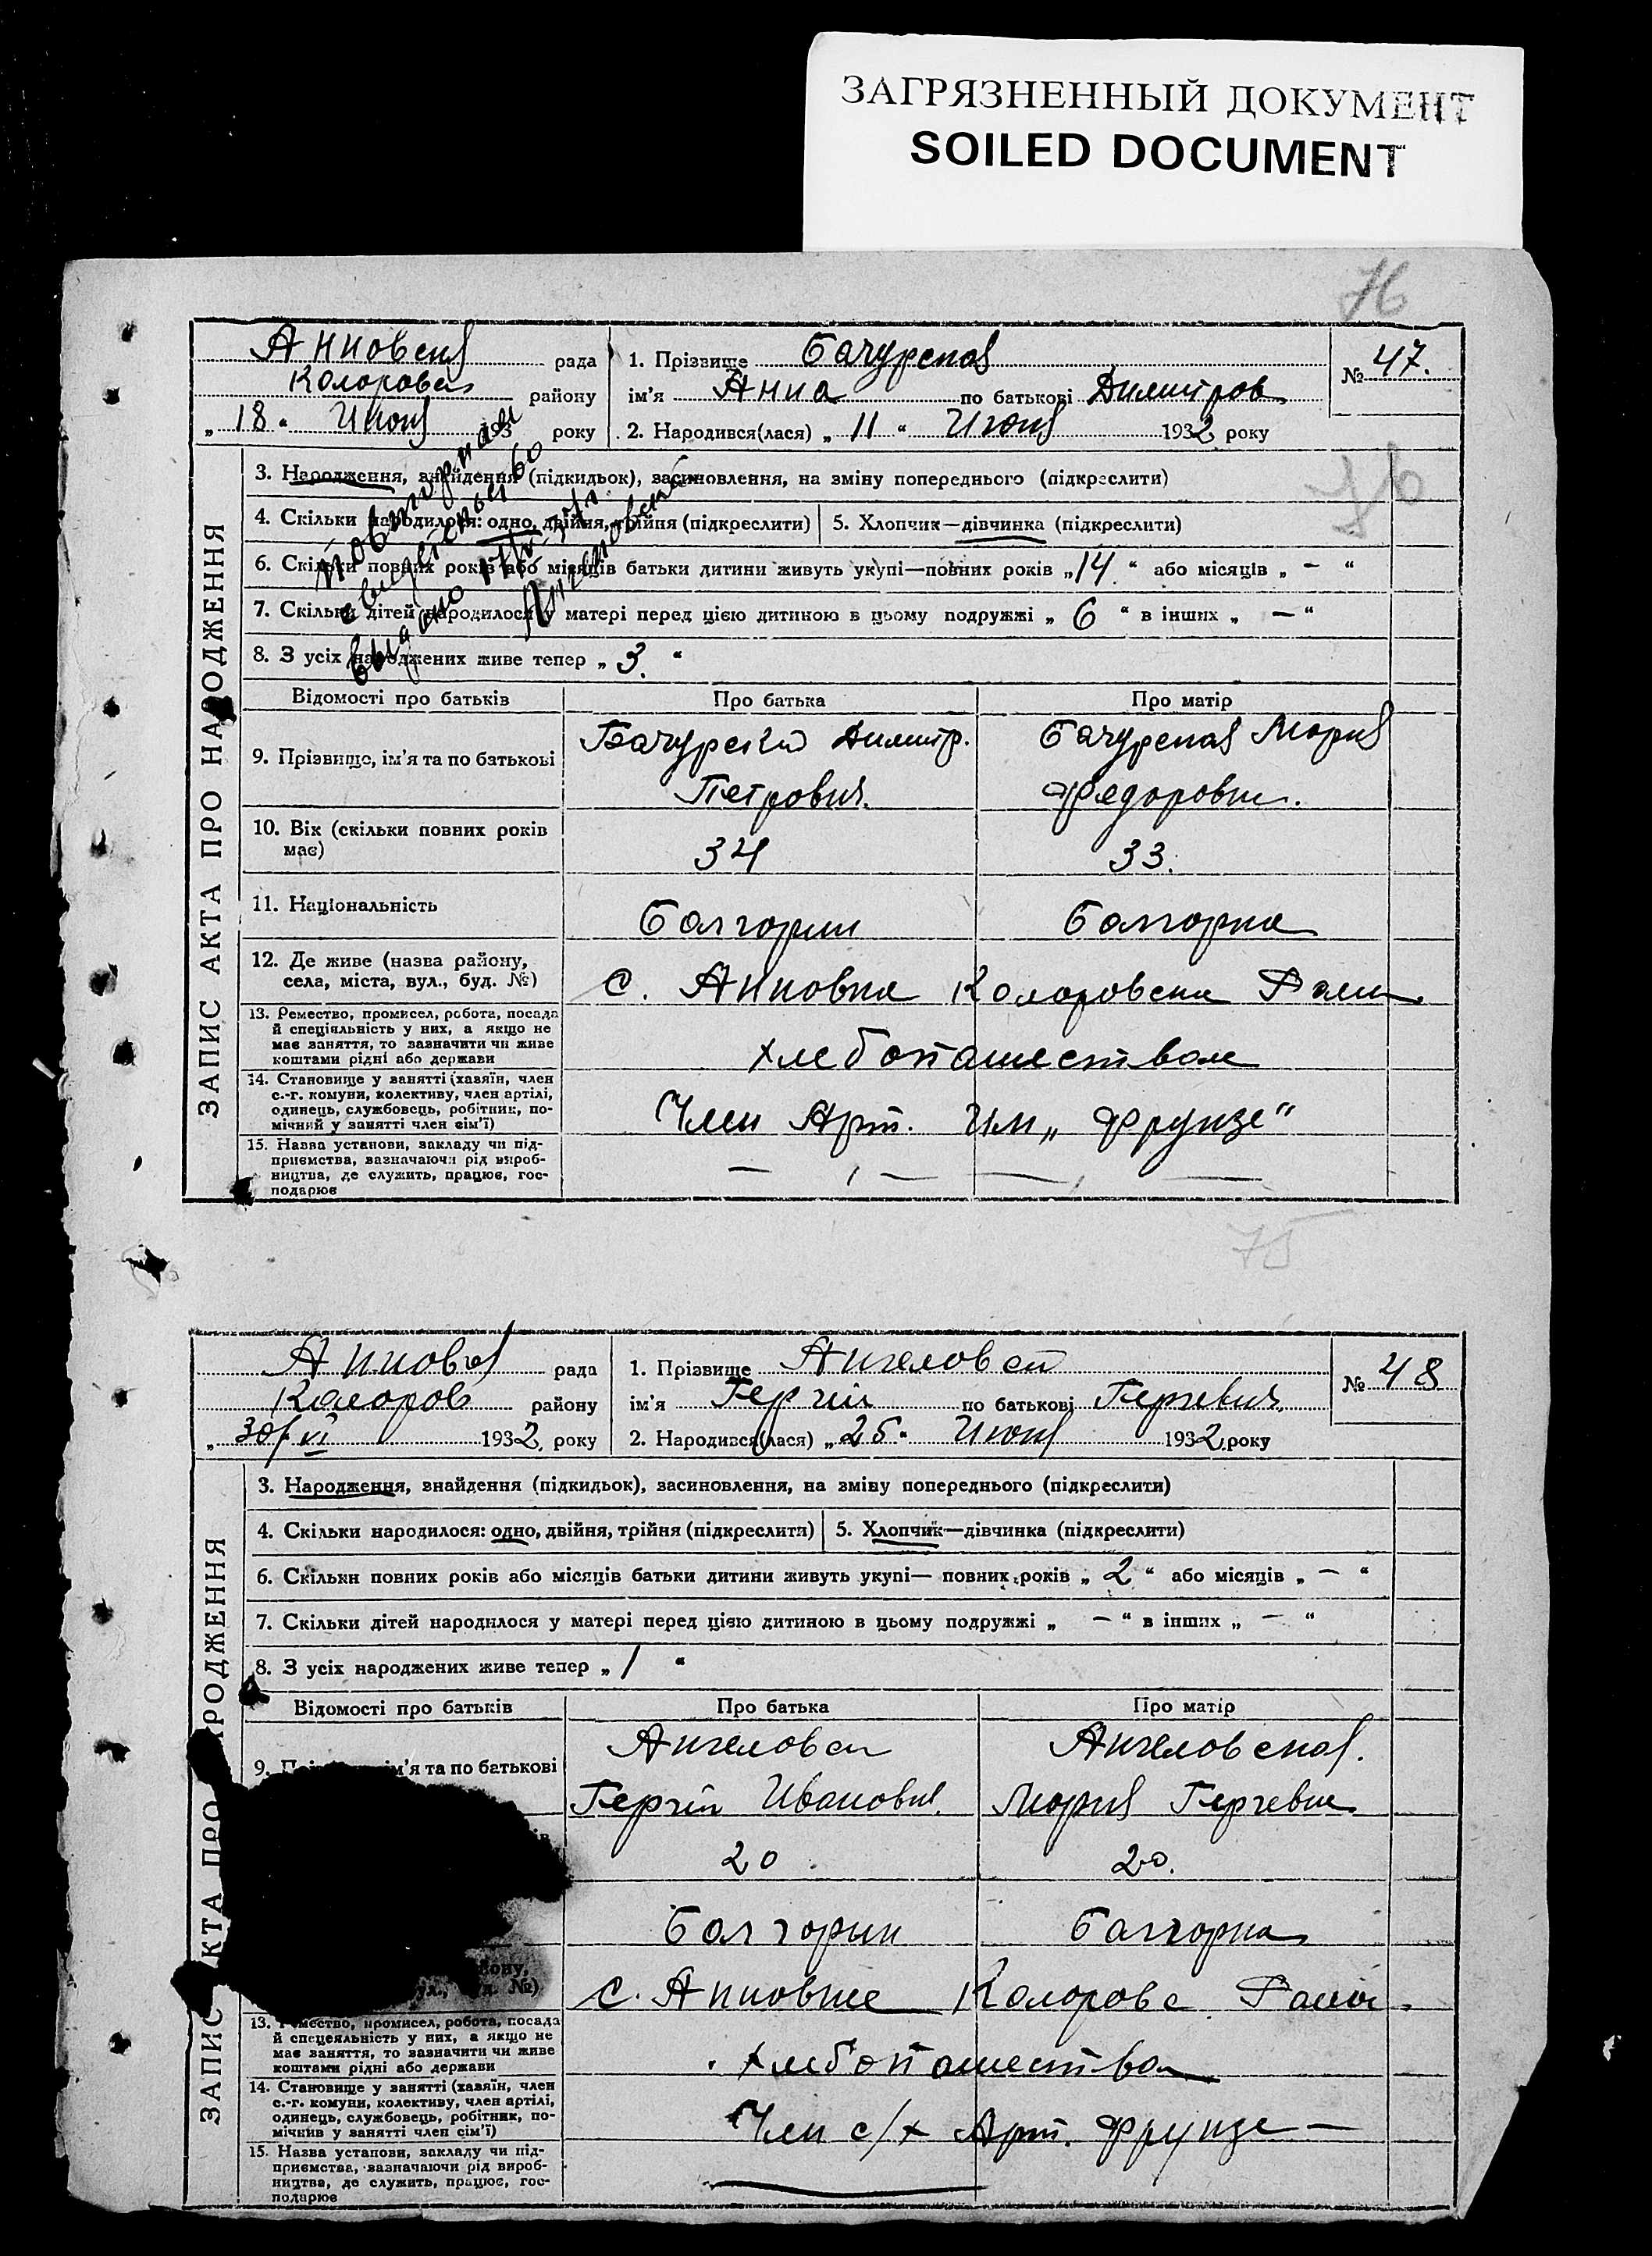 ЗАГРЯЗНЕННЫЙ ДОКУМЕНТ
SOILED DOCUMENT
76
ЗАПИС АКТА ПРО НАРОДЖЕННЯ
Анновская рада
Коларовск району
„18“ Июня 193 року
1. Прізвище Бачурская
ім'я Анна по батькові Димитров
2. Народився(лася) „11“ Июня 1932 року
№ 47.
3. Народження, знайдення (підкидьок), засиновлення, на зміну попереднього (підкреслити)
76
4. Скільки народилося: одно, двійня, трійня (підкреслити) 5. Хлопчик—дівчинка (підкреслити)
6. Скільки повних років або місяців батьки дитини живуть укупі—повних років „14“ або місяців „—“
7. Скільки дітей народилося у матері перед цією дитиною в цьому подружжі „6“ в інших „—“
8. З усіх народжених живе тепер „3.“
Повторная
свидетельство
выдано
Відомості про батьків Про батька Про матір
9. Прізвище, ім'я та по батькові
Бачурский Димитр. Бачурская Мария
Петрович. Федоровн.
10. Вік (скільки повних років має) 34 33.
11. Національність Болгорин Болгорка
12. Де живе (назва району, села, міста, вул., буд. №) с. Анновка Коларовска Район
13. Ремество, промисел, робота, посада
й спеціяльність у них, а якщо не
має заняття, то зазначити чи живе
коштами рідні або держави
хлебопашеством
14. Становище у занятті (хазяїн, член
с.-г. комуни, колективу, член артілі,
одинець, службовець, робітник, по-
мічний у занятті член сім'ї)
Член Арт. Им „Фрунзе“
15. Назва установи, закладу чи під-
приємства, вазначаючи рід вироб-
ництва, де служить, працює, гос-
подарює
— — — —
75
ЗАПИС КТА ПРО РОДЖЕННЯ
Анновская рада
Коларов району
„30/VI 1932 року
1. Прізвище Ангеловский
ім'я Гергий по батькові Гергевич.
2. Народився(лася) „25“ Июня 1932 року
№ 48
3. Народження, знайдення (підкидьок), засиновлення, на зміну попереднього (підкреслити)
4. Скільки народилося: одно, двійня, трійня (підкреслити) 5. Хлопчик—дівчинка (підкреслити)
6. Скільки повних років або місяців батьки дитини живуть укупі— повних років „2“ або місяців „—“
7. Скільки дітей народилося у матері перед цією дитиною в цьому подружжі „—“ в інших „—“
8. З усіх народжених живе тепер „1“
Відомості про батьків Про батька Про матір
9. ім'я та по батькові
Ангеловск Ангеловская.
Гергий Иванович. Мария Гергевна
20 20.
Болгорин Болгорка
ону,
№)
с. Анновке Коларовс Район.
13. Ремество, промисел, робота, посада
й спецеяльність у них, а якщо не
має заняття, то зазначити чи живе
коштами рідні або держави
хлебопашество
14. Становище у занятті (хазяїн, член
с.-г. комуни, колективу, член артілі,
одинець, службовець, робітник, по-
мічний у занятті член сім'ї)
Член с/х Арт. Фрунзе —
15. Назва установи, закладу чи під-
приємства, вазначаючи рід вироб-
ництва, де служить, працює, гос-
подарює